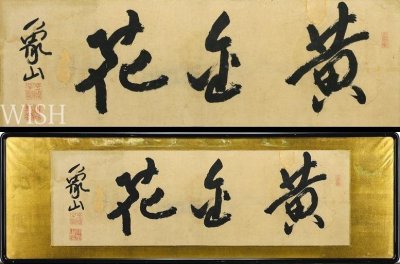 黄金花
象山
WISH
黄金花
象山